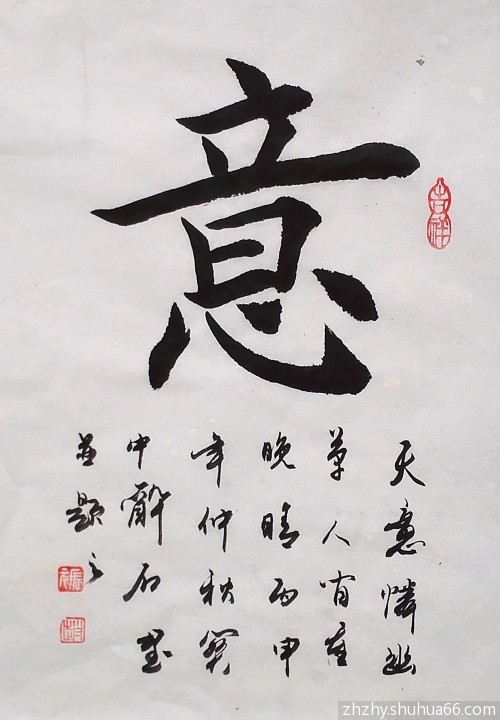 意
吉祥
天意憐幽
草人间重
晚晴丙申
年仲秋
中醉石
並題之
zhzhy.shuhua66.com